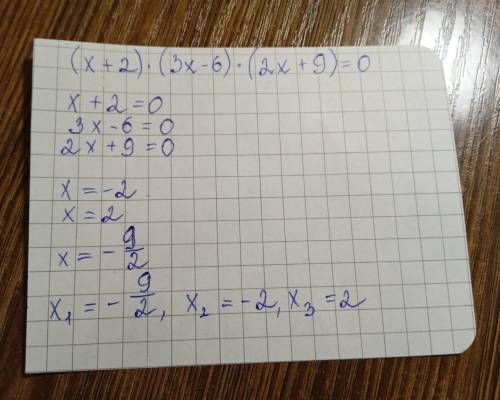 (x+2)·(3x-6)·(2x+9)=0
x+2=0
3x-6=0
2x+9=0
x=-2
x=2
x=-9/2
x₁=-9/2, x₂=-2, x₃=2